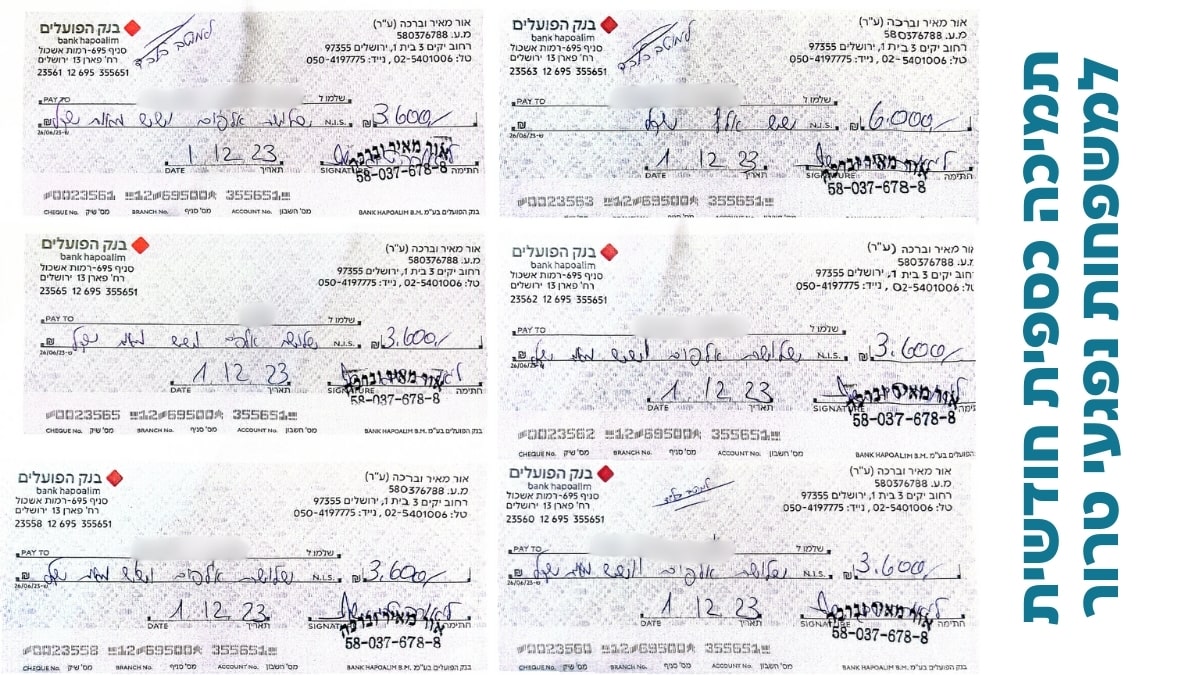 תמיכה כספית חודשית
למשפחות נפגעי טרור
בנק הפועלים
bank hapoalim
סניף 695-רמות אשכול
רח' פארן 13 ירושלים
23561 12 695 355651
למוטב בלבד
אור מאיר וברכה (ע"ר)
מ.ע: 580376788
רחוב יקים 3 בית 1, ירושלים 97355
טל: 02-5401006, נייד: 050-4197775
PAY TO שלמו ל
₪ שלושת אלפים ושש מאות שקל N.I.S. ₪ 3.600/
26/06/23-ש
1 12 23
DATE תאריך SIGNATURE חתימה
אור מאיר וברכה
58-037-678-8
⑈0023561 ⑆12⑈69500 355651⑆
CHEQUE No. מס' שיק BRANCH No. מס' סניף ACCOUNT No. מס' חשבון BANK HAPOALIM B.M. בנק הפועלים בע"מ
בנק הפועלים
bank hapoalim
סניף 695-רמות אשכול
רח' פארן 13 ירושלים
23563 12 695 355651
למוטב בלבד
אור מאיר וברכה (ע"ר)
מ.ע: 580376788
רחוב יקים 3 בית 1, ירושלים 97355
טל: 02-5401006, נייד: 050-4197775
PAY TO שלמו ל
₪ שש אלף שקל N.I.S. ₪ 6.000/
26/06/23-ש
1 12 23
DATE תאריך SIGNATURE חתימה
אור מאיר וברכה
58-037-678-8
⑈0023563 ⑆12⑈69500 355651⑆
CHEQUE No. מס' שיק BRANCH No. מס' סניף ACCOUNT No. מס' חשבון BANK HAPOALIM B.M. בנק הפועלים בע"מ
בנק הפועלים
bank hapoalim
סניף 695-רמות אשכול
רח' פארן 13 ירושלים
23565 12 695 355651
אור מאיר וברכה (ע"ר)
מ.ע: 580376788
רחוב יקים 3 בית 1, ירושלים 97355
טל: 02-5401006, נייד: 050-4197775
PAY TO שלמו ל
₪ שלושת אלפים ושש מאות שקל N.I.S. ₪ 3.600/
26/06/23-ש
1 12 23
DATE תאריך SIGNATURE חתימה
אור מאיר וברכה
58-037-678-8
⑈0023565 ⑆12⑈69500 355651⑆
CHEQUE No. מס' שיק BRANCH No. מס' סניף ACCOUNT No. מס' חשבון BANK HAPOALIM B.M. בנק הפועלים בע"מ
בנק הפועלים
bank hapoalim
סניף 695-רמות אשכול
רח' פארן 13 ירושלים
23562 12 695 355651
אור מאיר וברכה (ע"ר)
מ.ע: 580376788
רחוב יקים 3 בית 1, ירושלים 97355
טל: 02-5401006, נייד: 050-4197775
PAY TO שלמו ל
₪ שלושת אלפים ושש מאות שקל N.I.S. ₪ 3.600/
26/06/23-ש
1 12 23
DATE תאריך SIGNATURE חתימה
אור מאיר וברכה
58-037-678-8
⑈0023562 ⑆12⑈69500 355651⑆
CHEQUE No. מס' שיק BRANCH No. מס' סניף ACCOUNT No. מס' חשבון BANK HAPOALIM B.M. בנק הפועלים בע"מ
בנק הפועלים
bank hapoalim
סניף 695-רמות אשכול
רח' פארן 13 ירושלים
23558 12 695 355651
אור מאיר וברכה (ע"ר)
מ.ע: 580376788
רחוב יקים 3 בית 1, ירושלים 97355
טל: 02-5401006, נייד: 050-4197775
PAY TO שלמו ל
₪ שלושת אלפים ושש מאות שקל N.I.S. ₪ 3.600/
26/06/23-ש
1 12 23
DATE תאריך SIGNATURE חתימה
אור מאיר וברכה
58-037-678-8
⑈0023558 ⑆12⑈69500 355651⑆
CHEQUE No. מס' שיק BRANCH No. מס' סניף ACCOUNT No. מס' חשבון BANK HAPOALIM B.M. בנק הפועלים בע"מ
בנק הפועלים
bank hapoalim
סניף 695-רמות אשכול
רח' פארן 13 ירושלים
23560 12 695 355651
למוטב בלבד
אור מאיר וברכה (ע"ר)
מ.ע: 580376788
רחוב יקים 3 בית 1, ירושלים 97355
טל: 02-5401006, נייד: 050-4197775
PAY TO שלמו ל
₪ שלושת אלפים ושש מאות שקל N.I.S. ₪ 3.600/
26/06/23-ש
1 12 23
DATE תאריך SIGNATURE חתימה
אור מאיר וברכה
58-037-678-8
⑈0023560 ⑆12⑈69500 355651⑆
CHEQUE No. מס' שיק BRANCH No. מס' סניף ACCOUNT No. מס' חשבון BANK HAPOALIM B.M. בנק הפועלים בע"מ